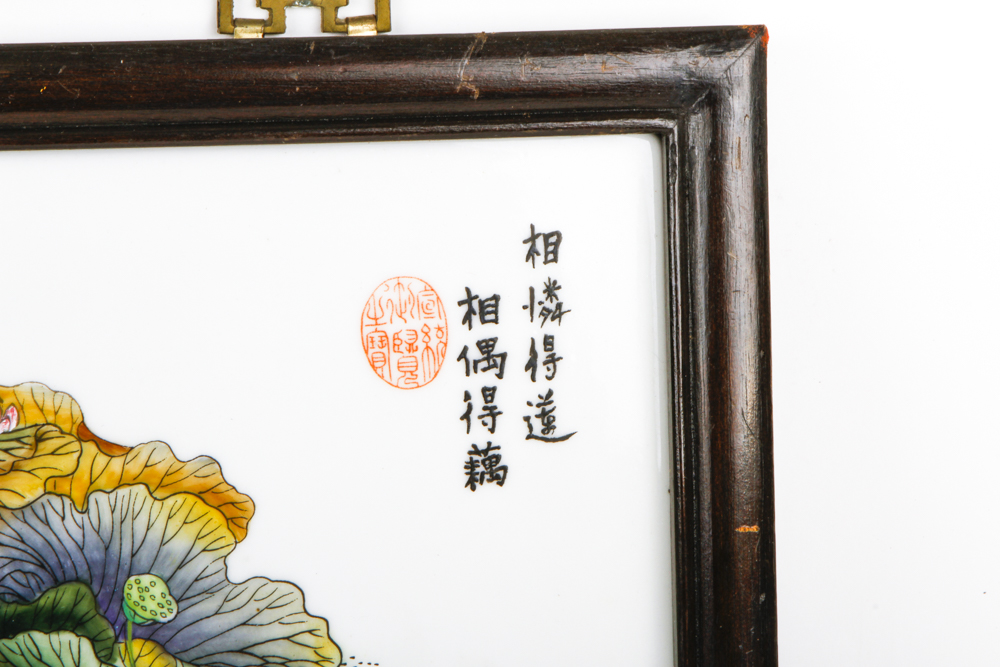 相憐得蓮
相偶得藕
宣統
御覽
之寶